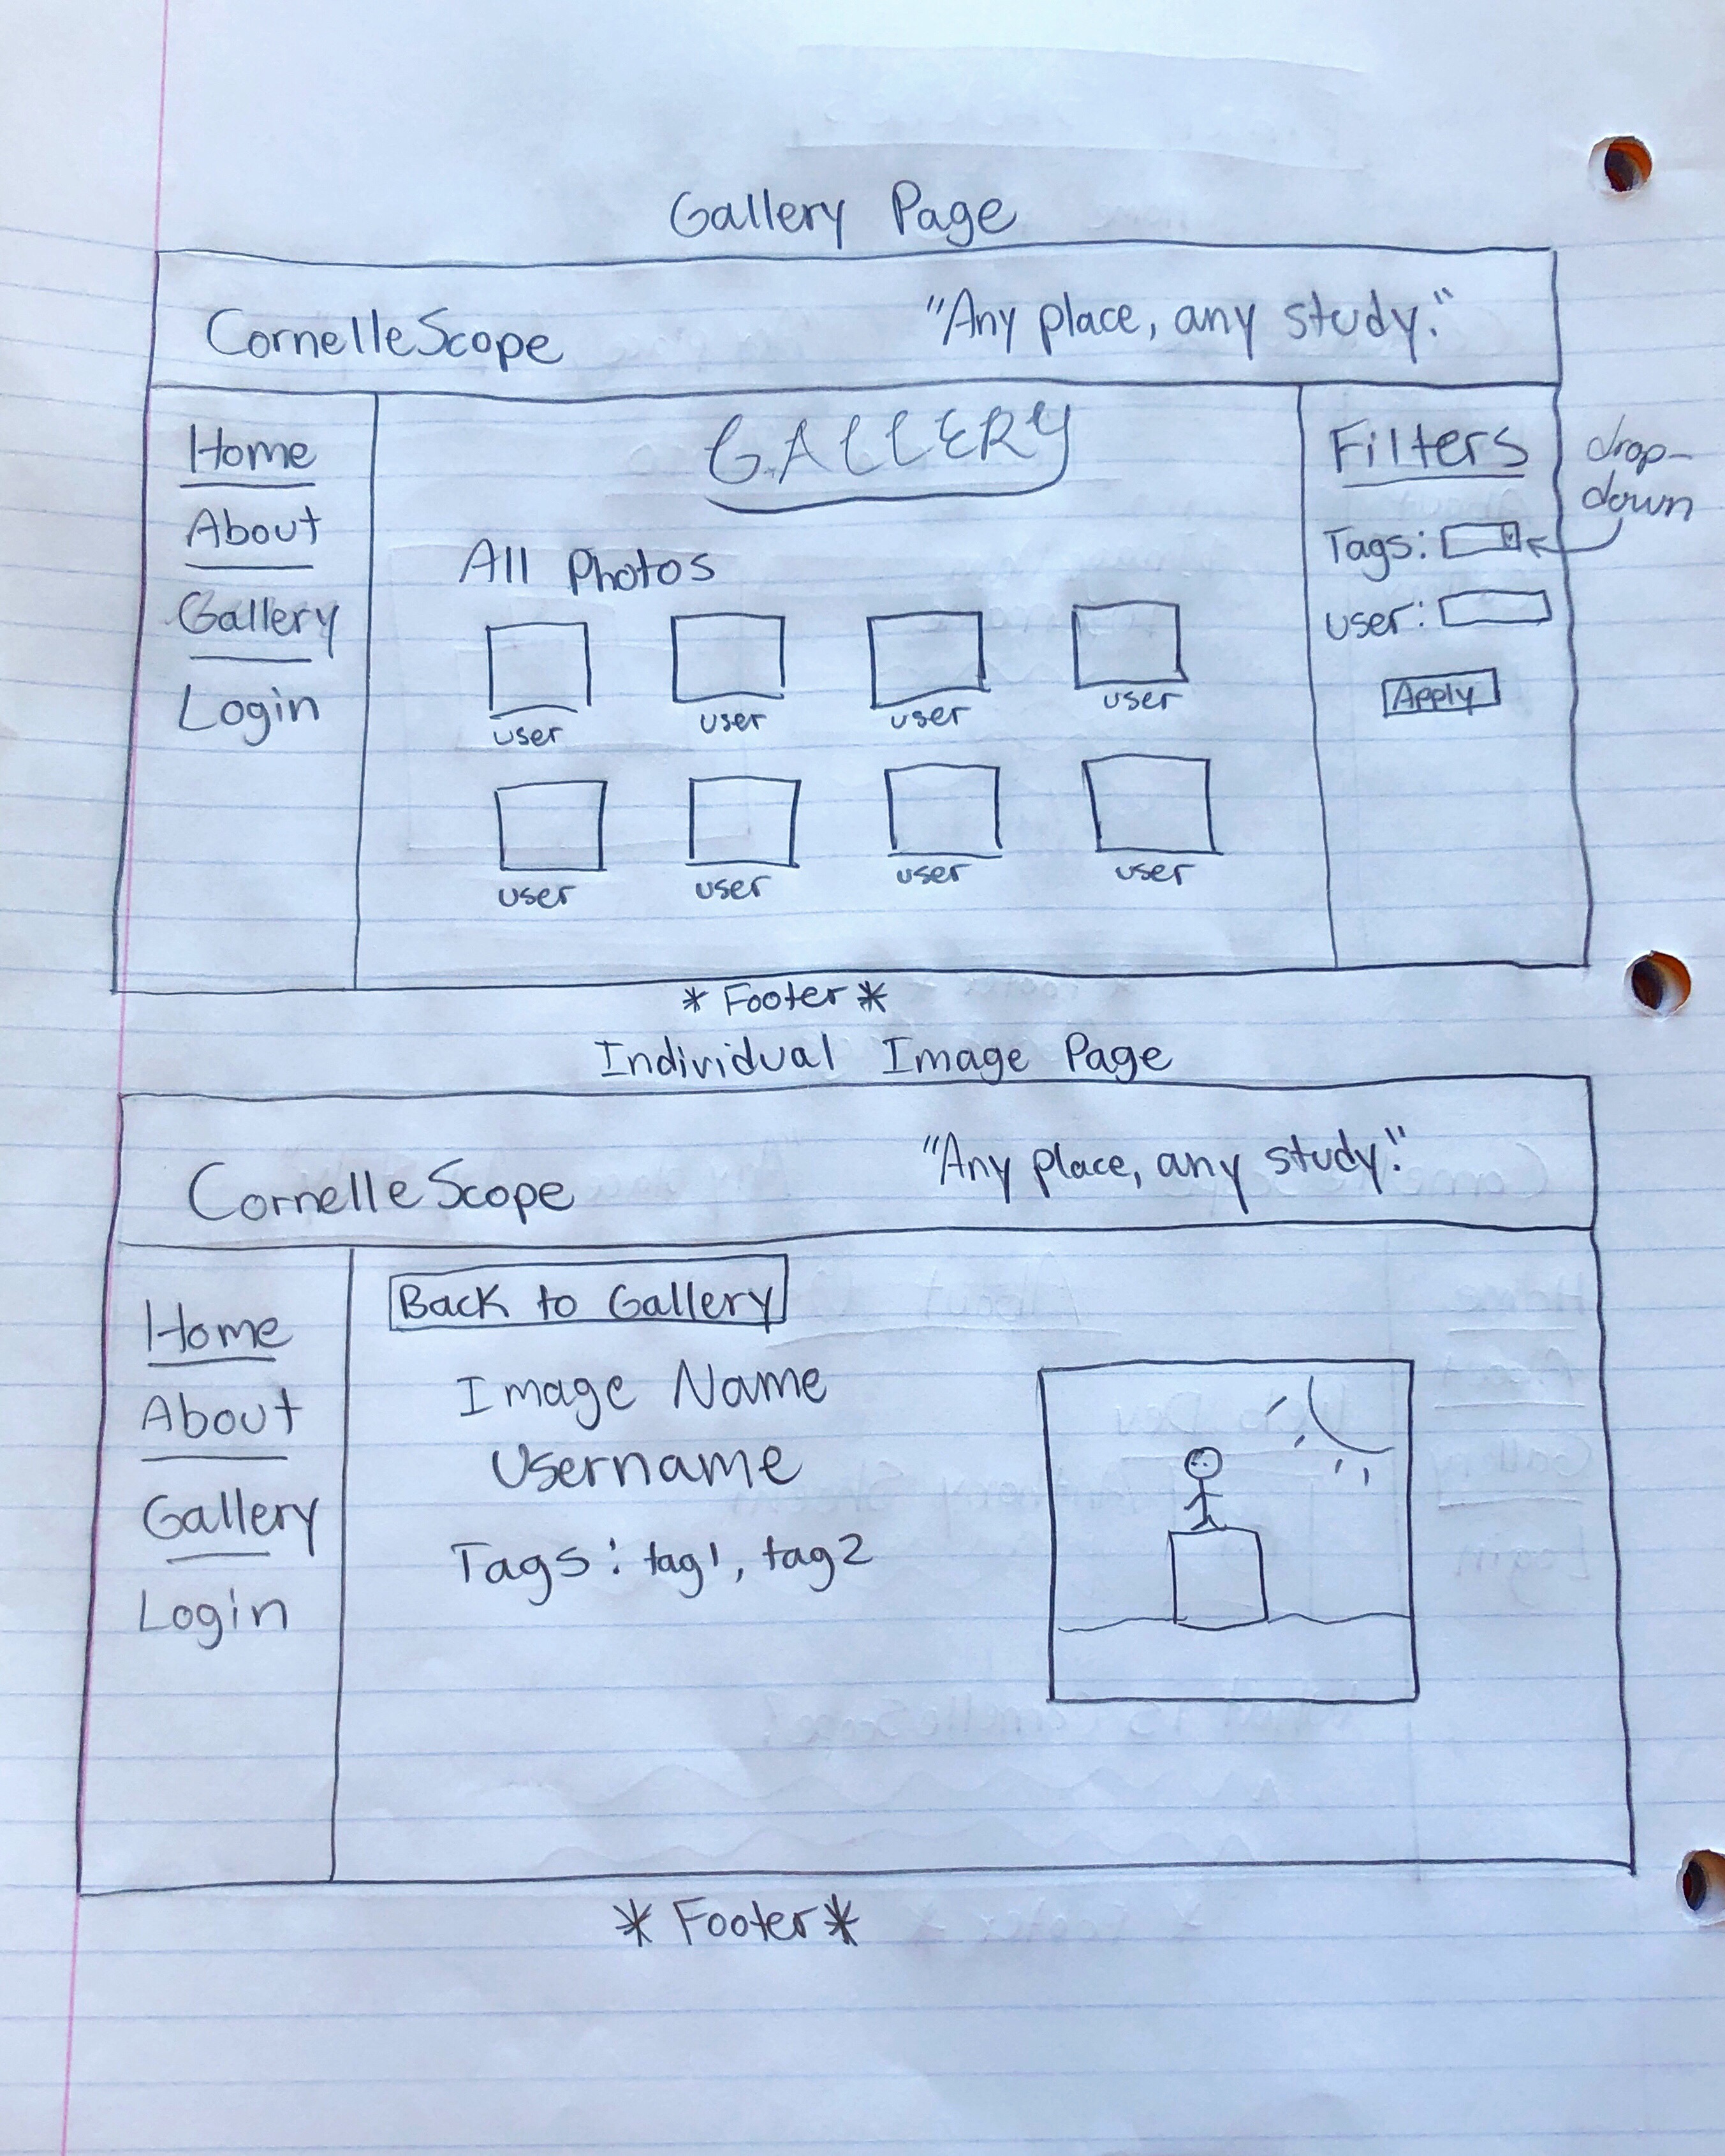 Gallery Page
CornelleScope
"Any place, any study."
Home
About
Gallery
Login
GALLERY
All Photos
user user user user
user user user user
Filters
Tags:
user:
Apply
drop-
down
* Footer *
Individual Image Page
CornelleScope
"Any place, any study."
Home
About
Gallery
Login
Back to Gallery
Image Name
Username
Tags: tag1, tag2
* Footer *